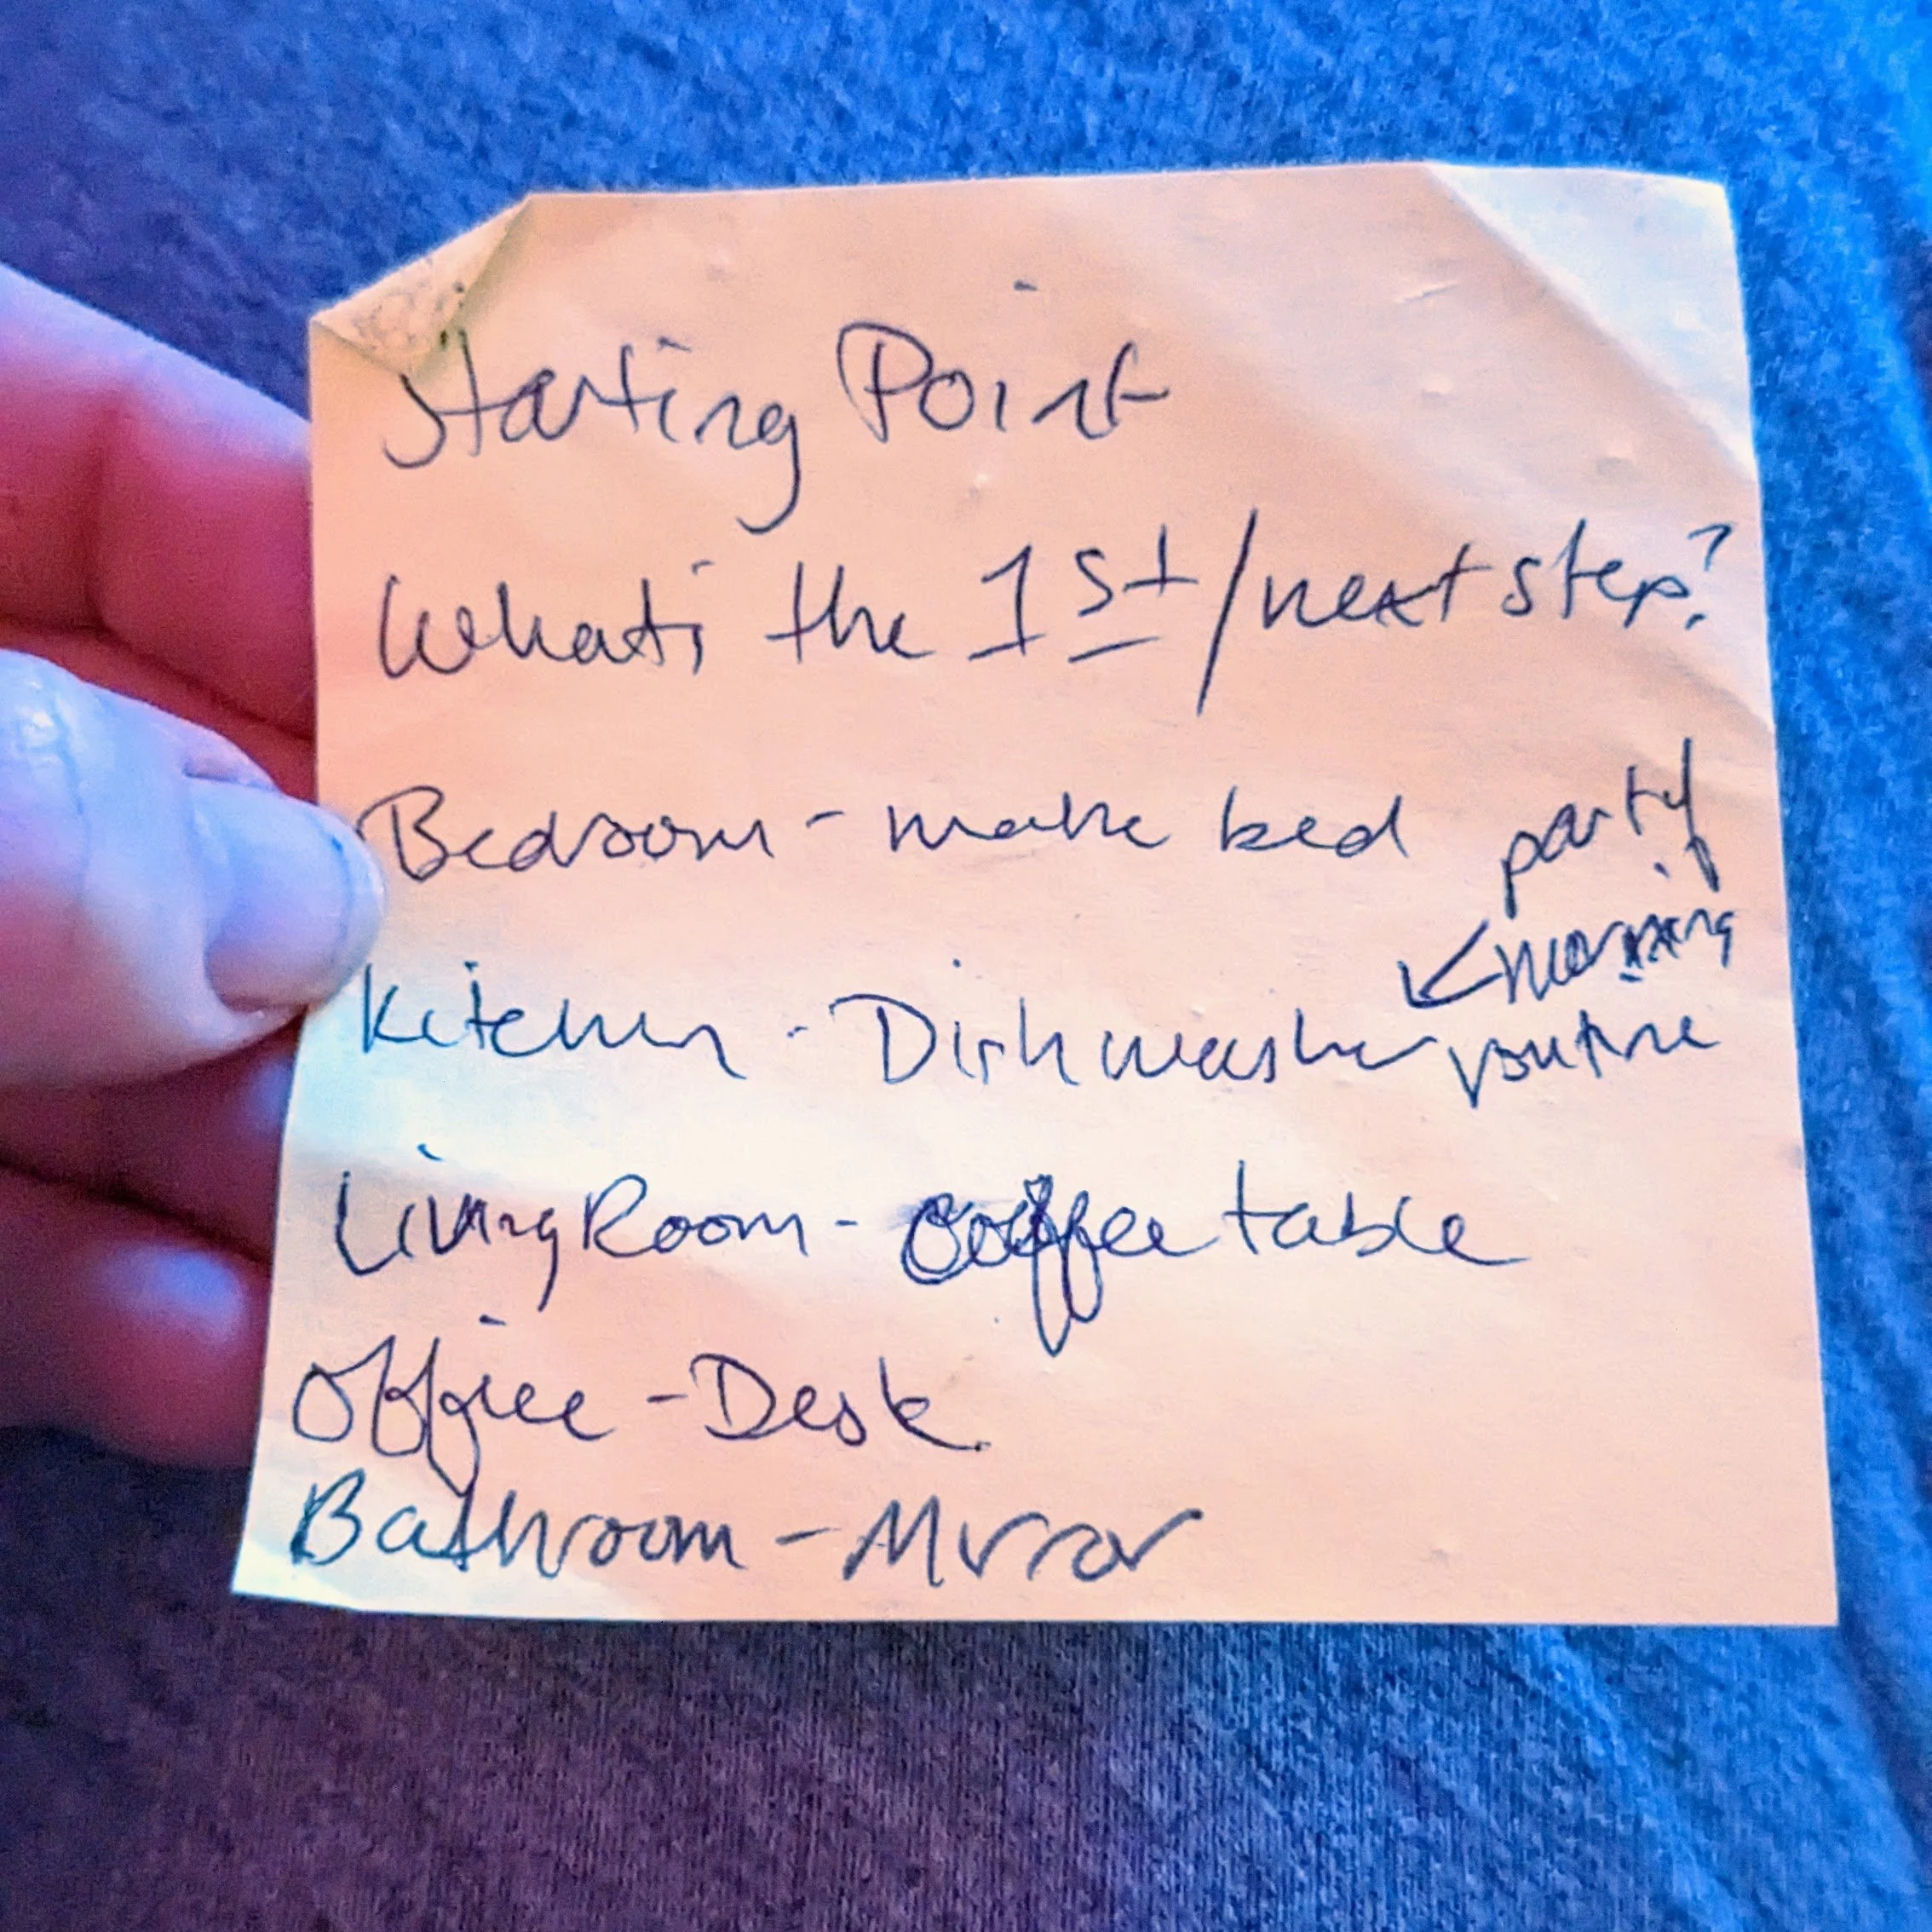 Starting Point
What's the 1st/next step?
Bedroom - make bed
party
morning
Kitchen - Dishwasher routine
Living Room - coffee table
Office - Desk
Bathroom - Mirror